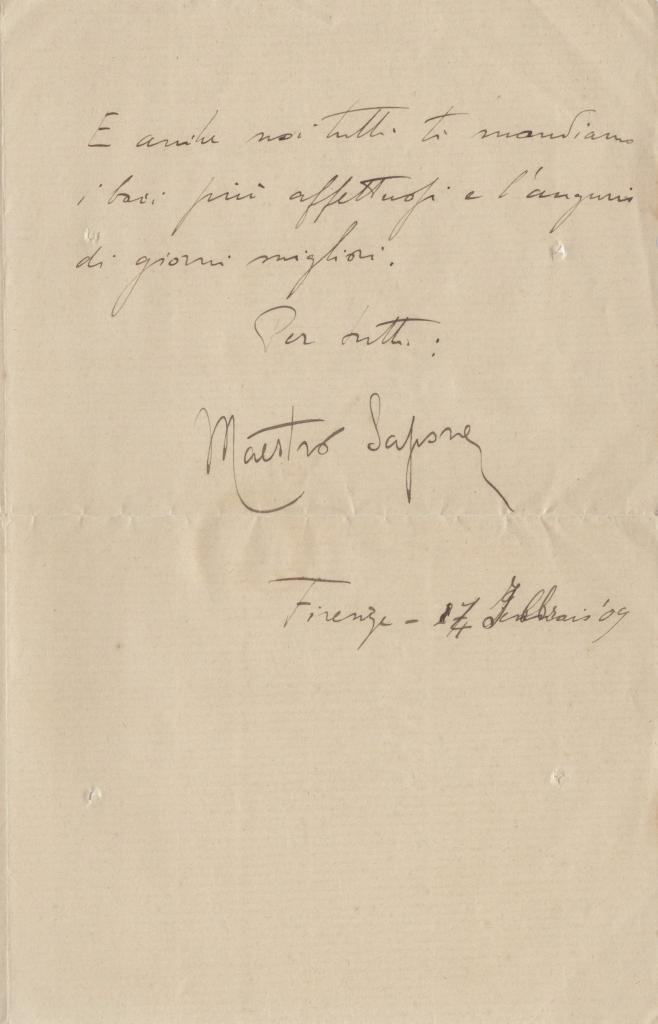 E anche noi tutti ti mandiamo
i baci più affettuosi e l'augurio
di giorni migliori.
Per tutti:
Maestro Sapone
Firenze - 17 Febbraio '09